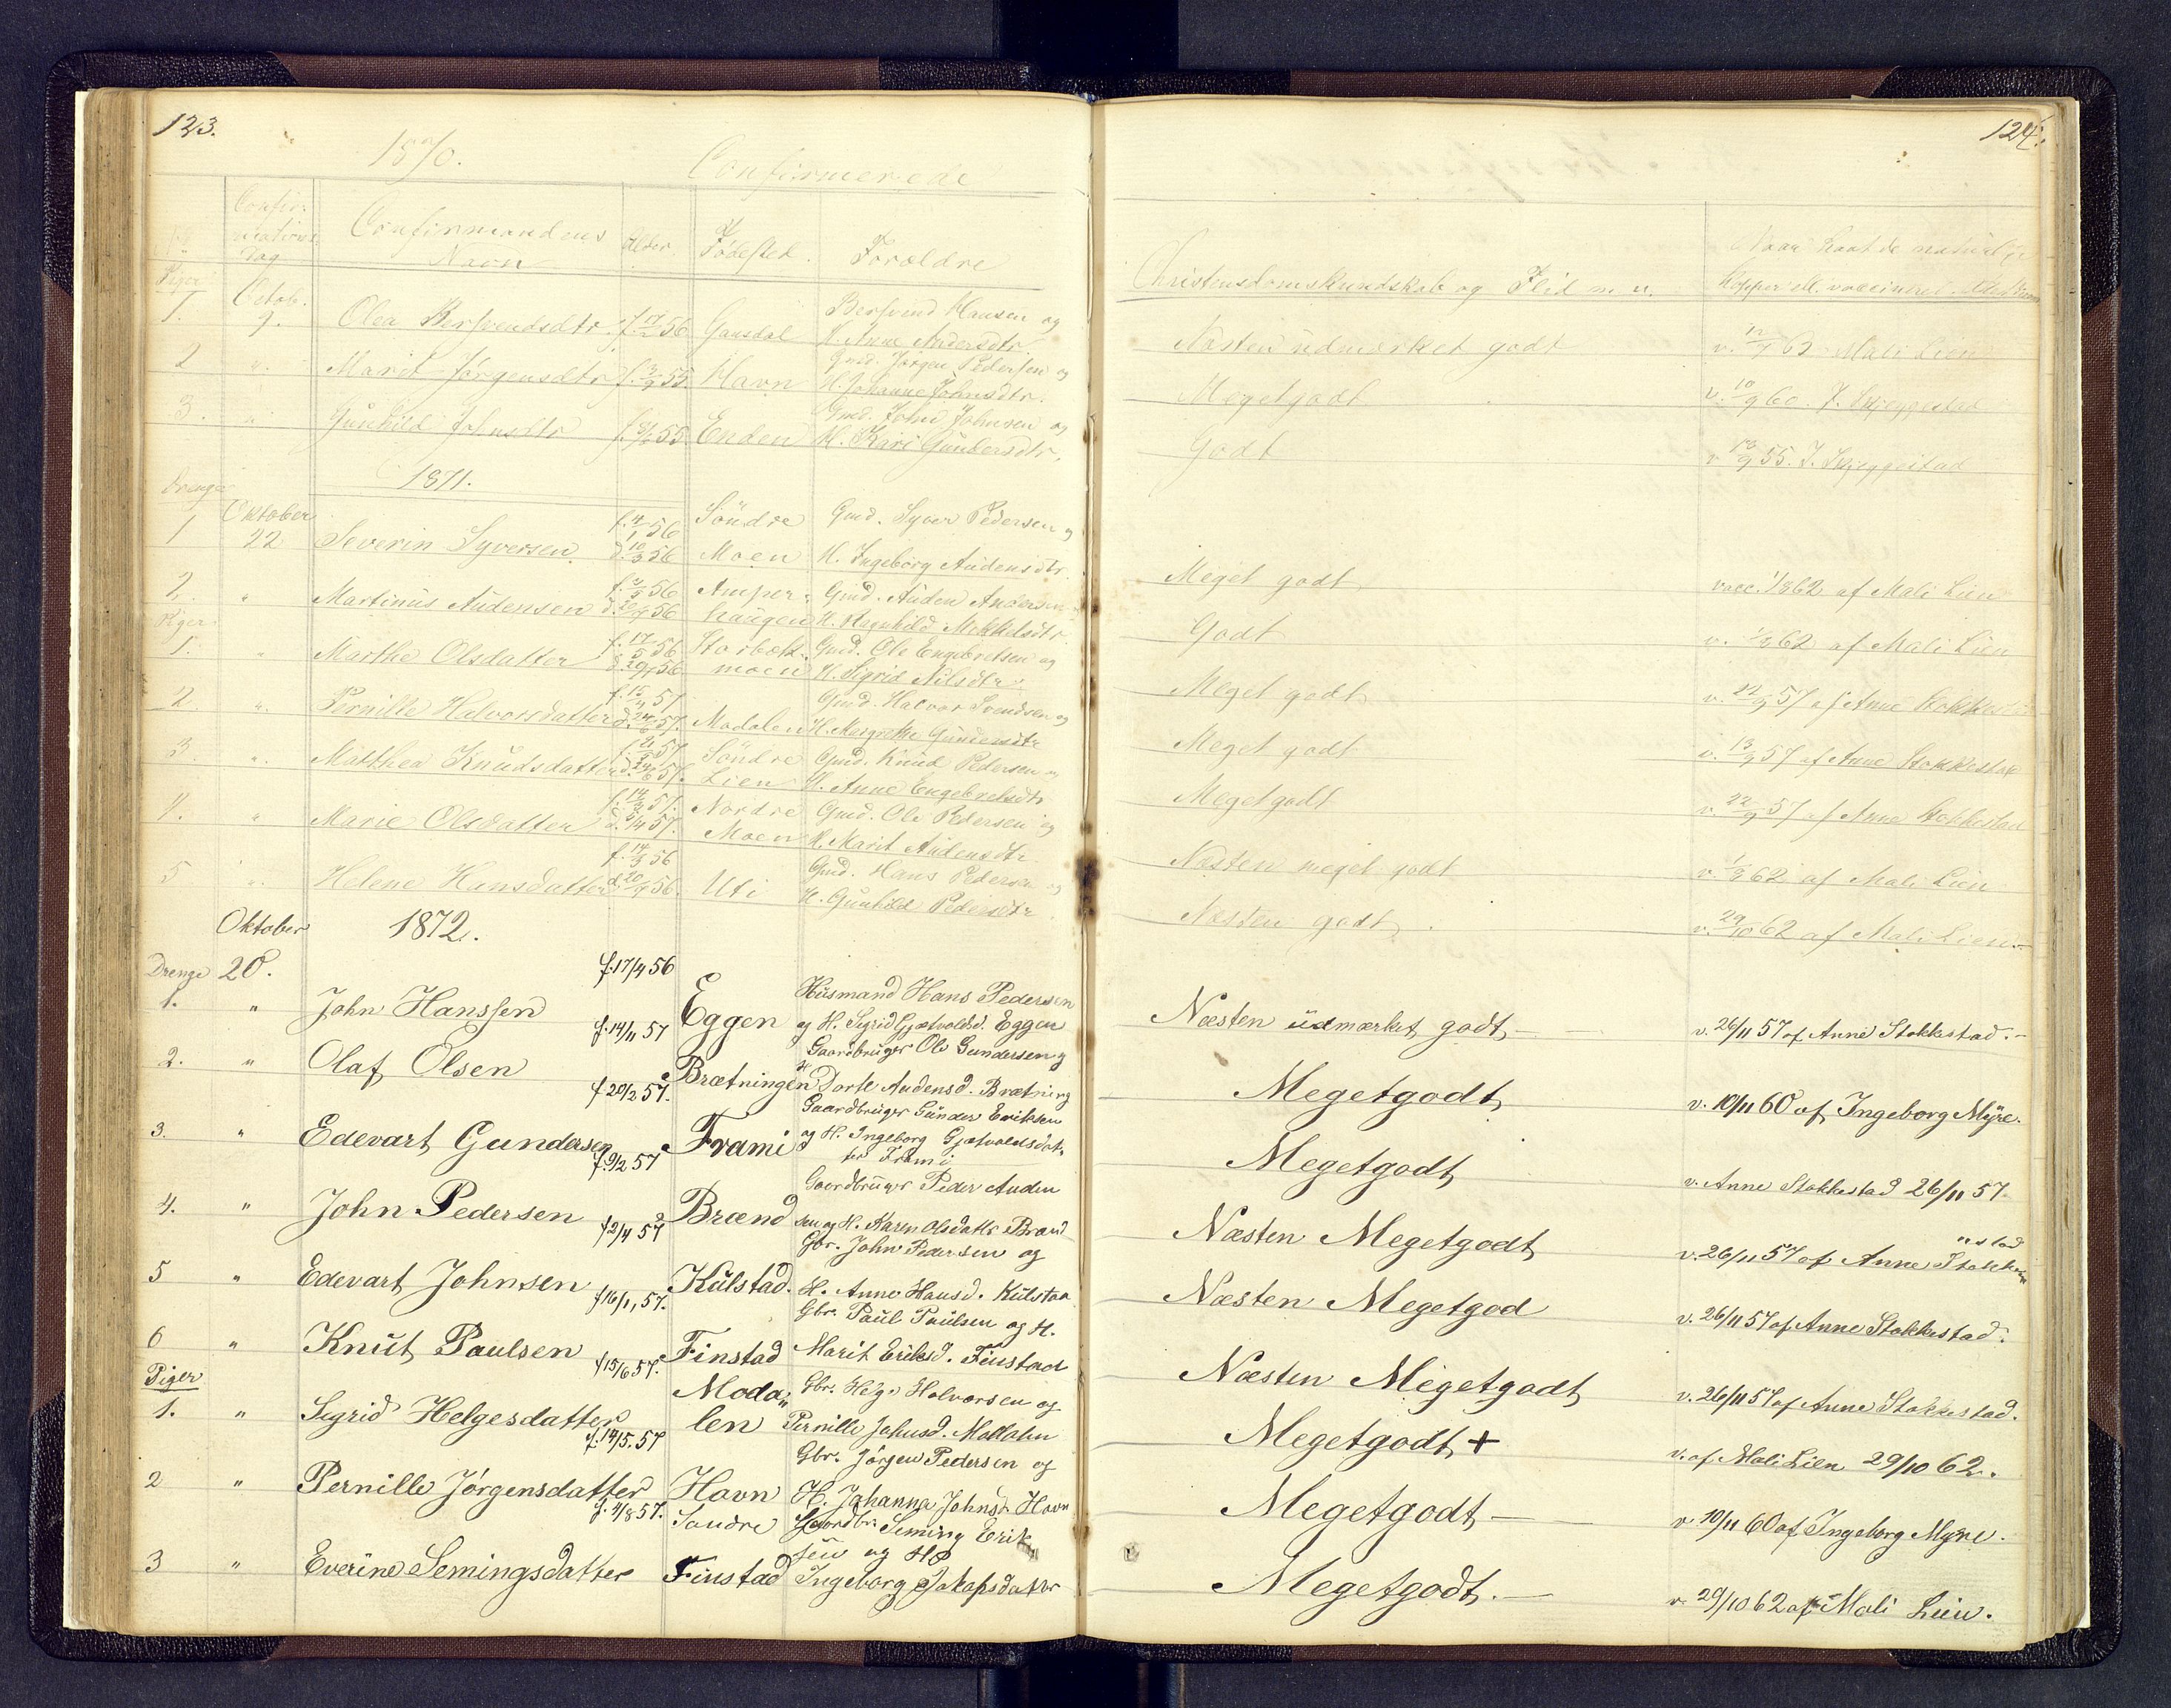 123.
1870.
Confirmerede
Confir-
mations
Dag
Confirmandens
Navn
Alder.
Fødested.
Forældre
Piger
Octob.
1. 9. Olea Bersvendsdtr. f. 17/2 56 Gansdal Bersvend Hansen og
H. Anne Andersdtr.
2 " Marit Jørgensdtr f. 3/9 55. Havn Gmd. Jørgen Pedersen og
H. Johanne Johnsdtr.
3. " Gunhild Johnsdtr 55 Enden Gmd. John Johnsen og
H. Kari Gundersdtr.
1871.
Drenge
Oktober
1 22 Severin Syversen f. 4/1 56 d. 10/3 56 Söndre Moen Gmd. Syver Pedersen og
H. Ingeborg Audensdtr.
2. " Martinus Audensen 56 Amper-haugen Gmd. Auden Andersen
H. Ragnhild Mikkelsdtr
Piger
1. " Marthe Olsdatter f. 17/5 56 d. 29/6 56 Storbæk-moen Gmd. Ole Engebretsen og
H. Sigrid Nilsdtr.
2. " Pernille Halvorsdatter f. 15/4 57 d. 24/6 57. Modalen Gmd. Halvor Svendsen og
H. Margrethe Gundersdtr
3. " Matthea Knudsdatter 57 d. 24/6 57. Söndre Lien Gmd. Knud Pedersen og
H. Anne Engebretsdtr
4. " Marie Olsdatter 57. 57. Nordre Moen Gmd. Ole Pedersen og
H. Marit Audensdtr.
5 " Helene Hansdatter f. 14/8 56 d. 20/9 56. Uti Gmd. Hans Pedersen og
H. Gunhild Pedersdtr
Oktober 1872.
Drenge 20.
1. " John Hanssen f. 17/4 56 Eggen Husmand Hans Pedersen
og H. Sigrid Gjætvoldsd. Eggen
2. " Olaf Olsen f. 14/11 57 Brætningen Gaardbruger Ole Gundersen og
H Dorte Audensd. Brætning
3. " Edevart Gundersen f 20/2 57. Frami Gaardbruger Gunder Eriksen
og H. Ingeborg Gjætvoldsdat-
ter Frami
4. " John Pedersen f. 9/2 57 Brænd Gaardbruger Peder Auden
sen og H. Karen Olsdatter Brænd
5 " Edevart Johnsen f 2/4 57 Kulstad. Gbr. John Pedersen og
H. Anne Hansd. Kulstad
6 " Knut Paulsen f 16/1, 57. Finstad Gbr. Paul Paulsen og H.
Marit Eriksd. Finstad
Piger
1. " Sigrid Helgesdatter f 15/6 57. Moda„len Gbr. Helge Halvorsen og
Pernille Johnsd. Modalen
2 " Pernille Jörgensdatter f. 14/5. 57 Havn Gbr. Jörgen Pedersen og
H. Johanna Johnsd. Havn
3 " Everine Semingsdatter f. 4/8 57. Søndre Finstad Gaardbr. Seming Erik
sen og H
Ingeborg Jakopsdatter
124.
Christensdomskundskab og Flid m. v.
Naar havt de naturlige
Kopper ell. vaccineret
Næsten udmærket godt v. 12/7 63 Mali Lien
Megetgodt v. 10/9 60. J. Skjeggestad
Godt v 18/9 55. J. Skjeggestad
Meget godt vacc. 1/8 62 af Mali Lien
Godt v. 1/8 62 af Mali Lien
Meget godt v. 22/9 57 af Anne Stokkestad
Meget godt v. 13/9 57 af Anne Stokkestad
Megetgodt v. 22/9 57 af Anne Stokkestad
Næsten meget godt v. 1/8 62 af Mali Lien
Næsten godt. v. 29/10 62 af Mali Lien.
Næsten üdmærket godt, v. 26/11 57 af Anne Stokkestad.
Megetgodt, v. 10/11 60 af Ingeborg Myre.
Megetgodt, v. Anne Stokkestad 26/11 57.
Næsten Megetgodt v. 26/11 57 af Anne Stokkestad
Næsten Megetgod v. 26/11 57 af Anne Stokkestad.
Næsten Megetgodt v. 26/11 57 af Anne Stokkestad.
Megetgodt + v. af Mali Lien 29/10 62.
Megetgodt v. 10/11 60 af Ingeborg Myre.
Megetgodt. v. 29/10 62 af Mali Lien.